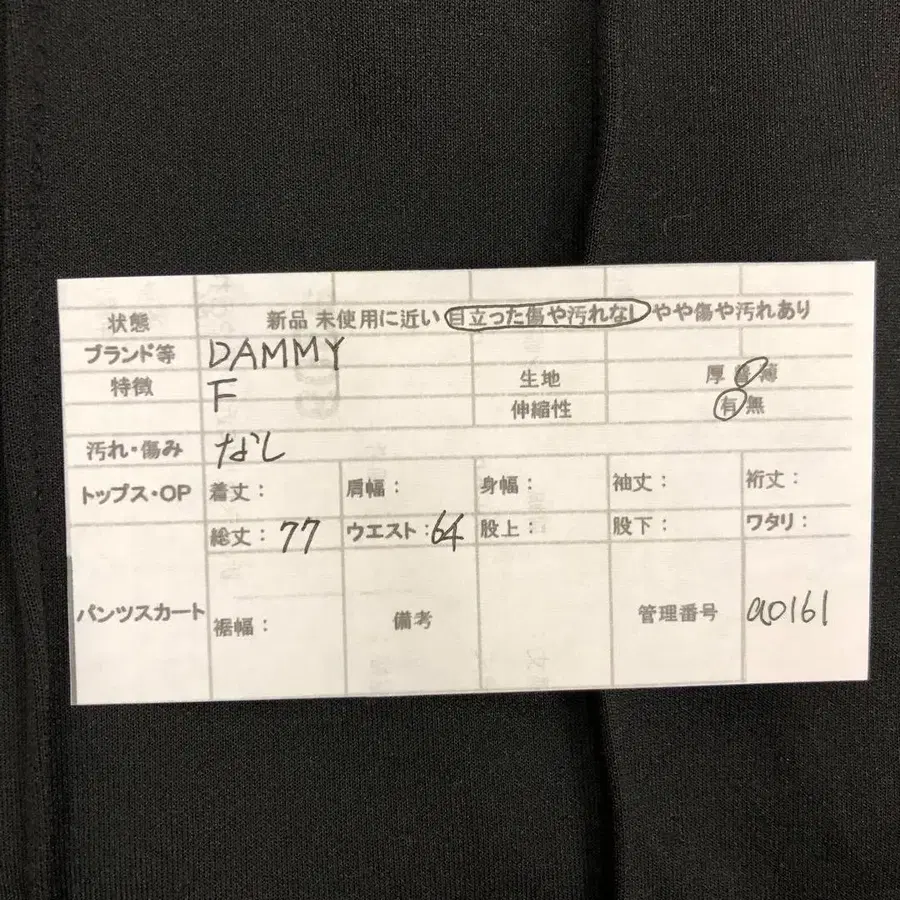 状態 新品 未使用に近い 目立った傷や汚れなし やや傷や汚れあり
ブランド等 DAMMY
特徴 F 生地 厚 普 薄
伸縮性 有 無
汚れ・傷み なし
トップス・OP 着丈: 肩幅: 身幅: 袖丈: 裄丈:
総丈: 77 ウエスト: 64 股上: 股下: ワタリ:
パンツスカート 裾幅: 備考 管理番号 a0161